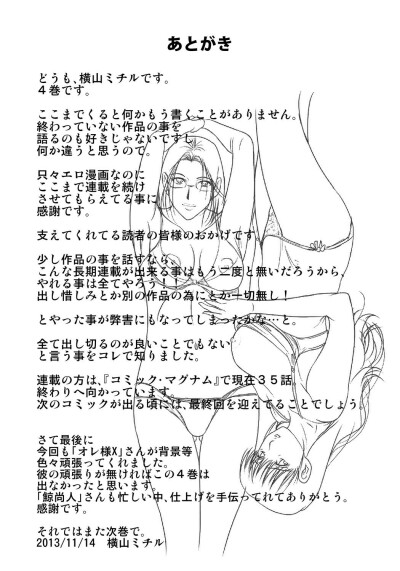 あとがき
どうも、横山ミチルです。
４巻です。
ここまでくると何かもう書くことがありません。
終わっていない作品の事を
語るのも好きじゃないですし
何か違うと思うので。
只々エロ漫画なのに
ここまで連載を続け
させてもらえてる事に
感謝です。
支えてくれてる読者の皆様のおかげです。
少し作品の事を話すなら、
こんな長期連載が出来る事はもう二度と無いだろうから、
やれる事は全てやろう！！
出し惜しみとか別の作品の為にとか一切無し！
とやった事が弊害にもなってしまったかな…と。
全て出し切るのが良いことでもない
と言う事をコレで知りました。
連載の方は、『コミック・マグナム』で現在３５話。
終わりへ向かっています。
次のコミックが出る頃には、最終回を迎えてることでしょう。
さて最後に
今回も「オレ様X」さんが背景等
色々頑張ってくれました。
彼の頑張りが無ければこの４巻は
出なかったと思います。
「鯨尚人」さんも忙しい中、仕上げを手伝ってれてありがとう。
感謝です。
それではまた次巻で。
2013/11/14　横山ミチル